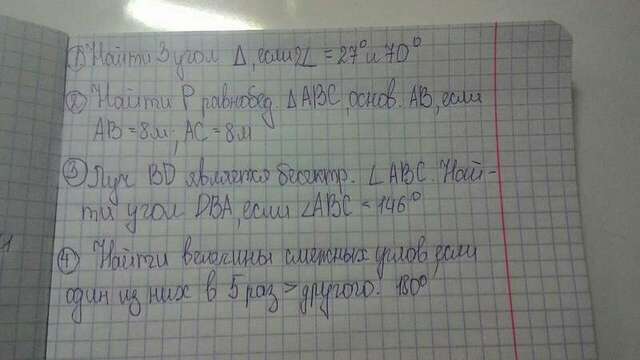 ① Найти 3 угол Δ, если 2∠ = 27° и 70°
② Найти P равнобед. ΔABC, основ. AB, если
AB = 8м, AC = 8м
③ Луч BD является биссектр. ∠ABC. Най-
ти угол DBA, если ∠ABC = 146°
④ Найти величины смежных углов, если
один из них в 5 раз > другого. 180°